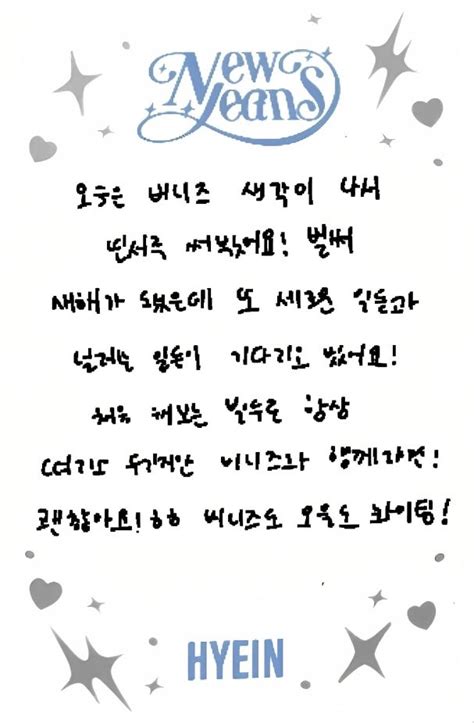 New
Jeans
오늘은 버니즈 생각이 나서
편지를 써봤어요! 벌써
새해가 됐은데 또 새로운 일들과
설레는 일들이 기다리고 있어요!
처음 해보는 일들로 항상
떨리고 두렵지만 버니즈와 함께라면!
괜찮아요!ㅎㅎ 버니즈도 오늘도 화이팅!
HYEIN